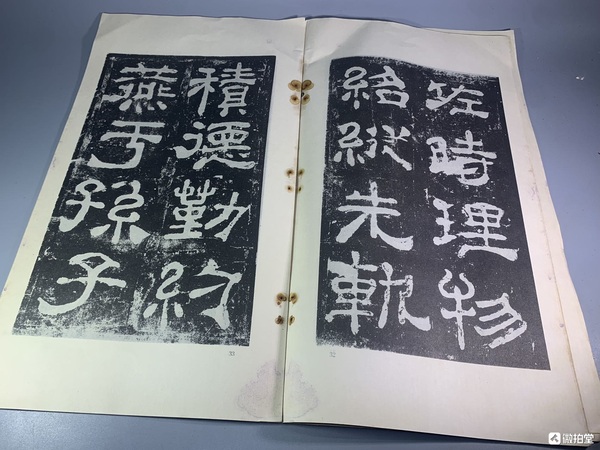 佐時理物
紹縱先軌
積德勤約
燕于孫子
微拍堂